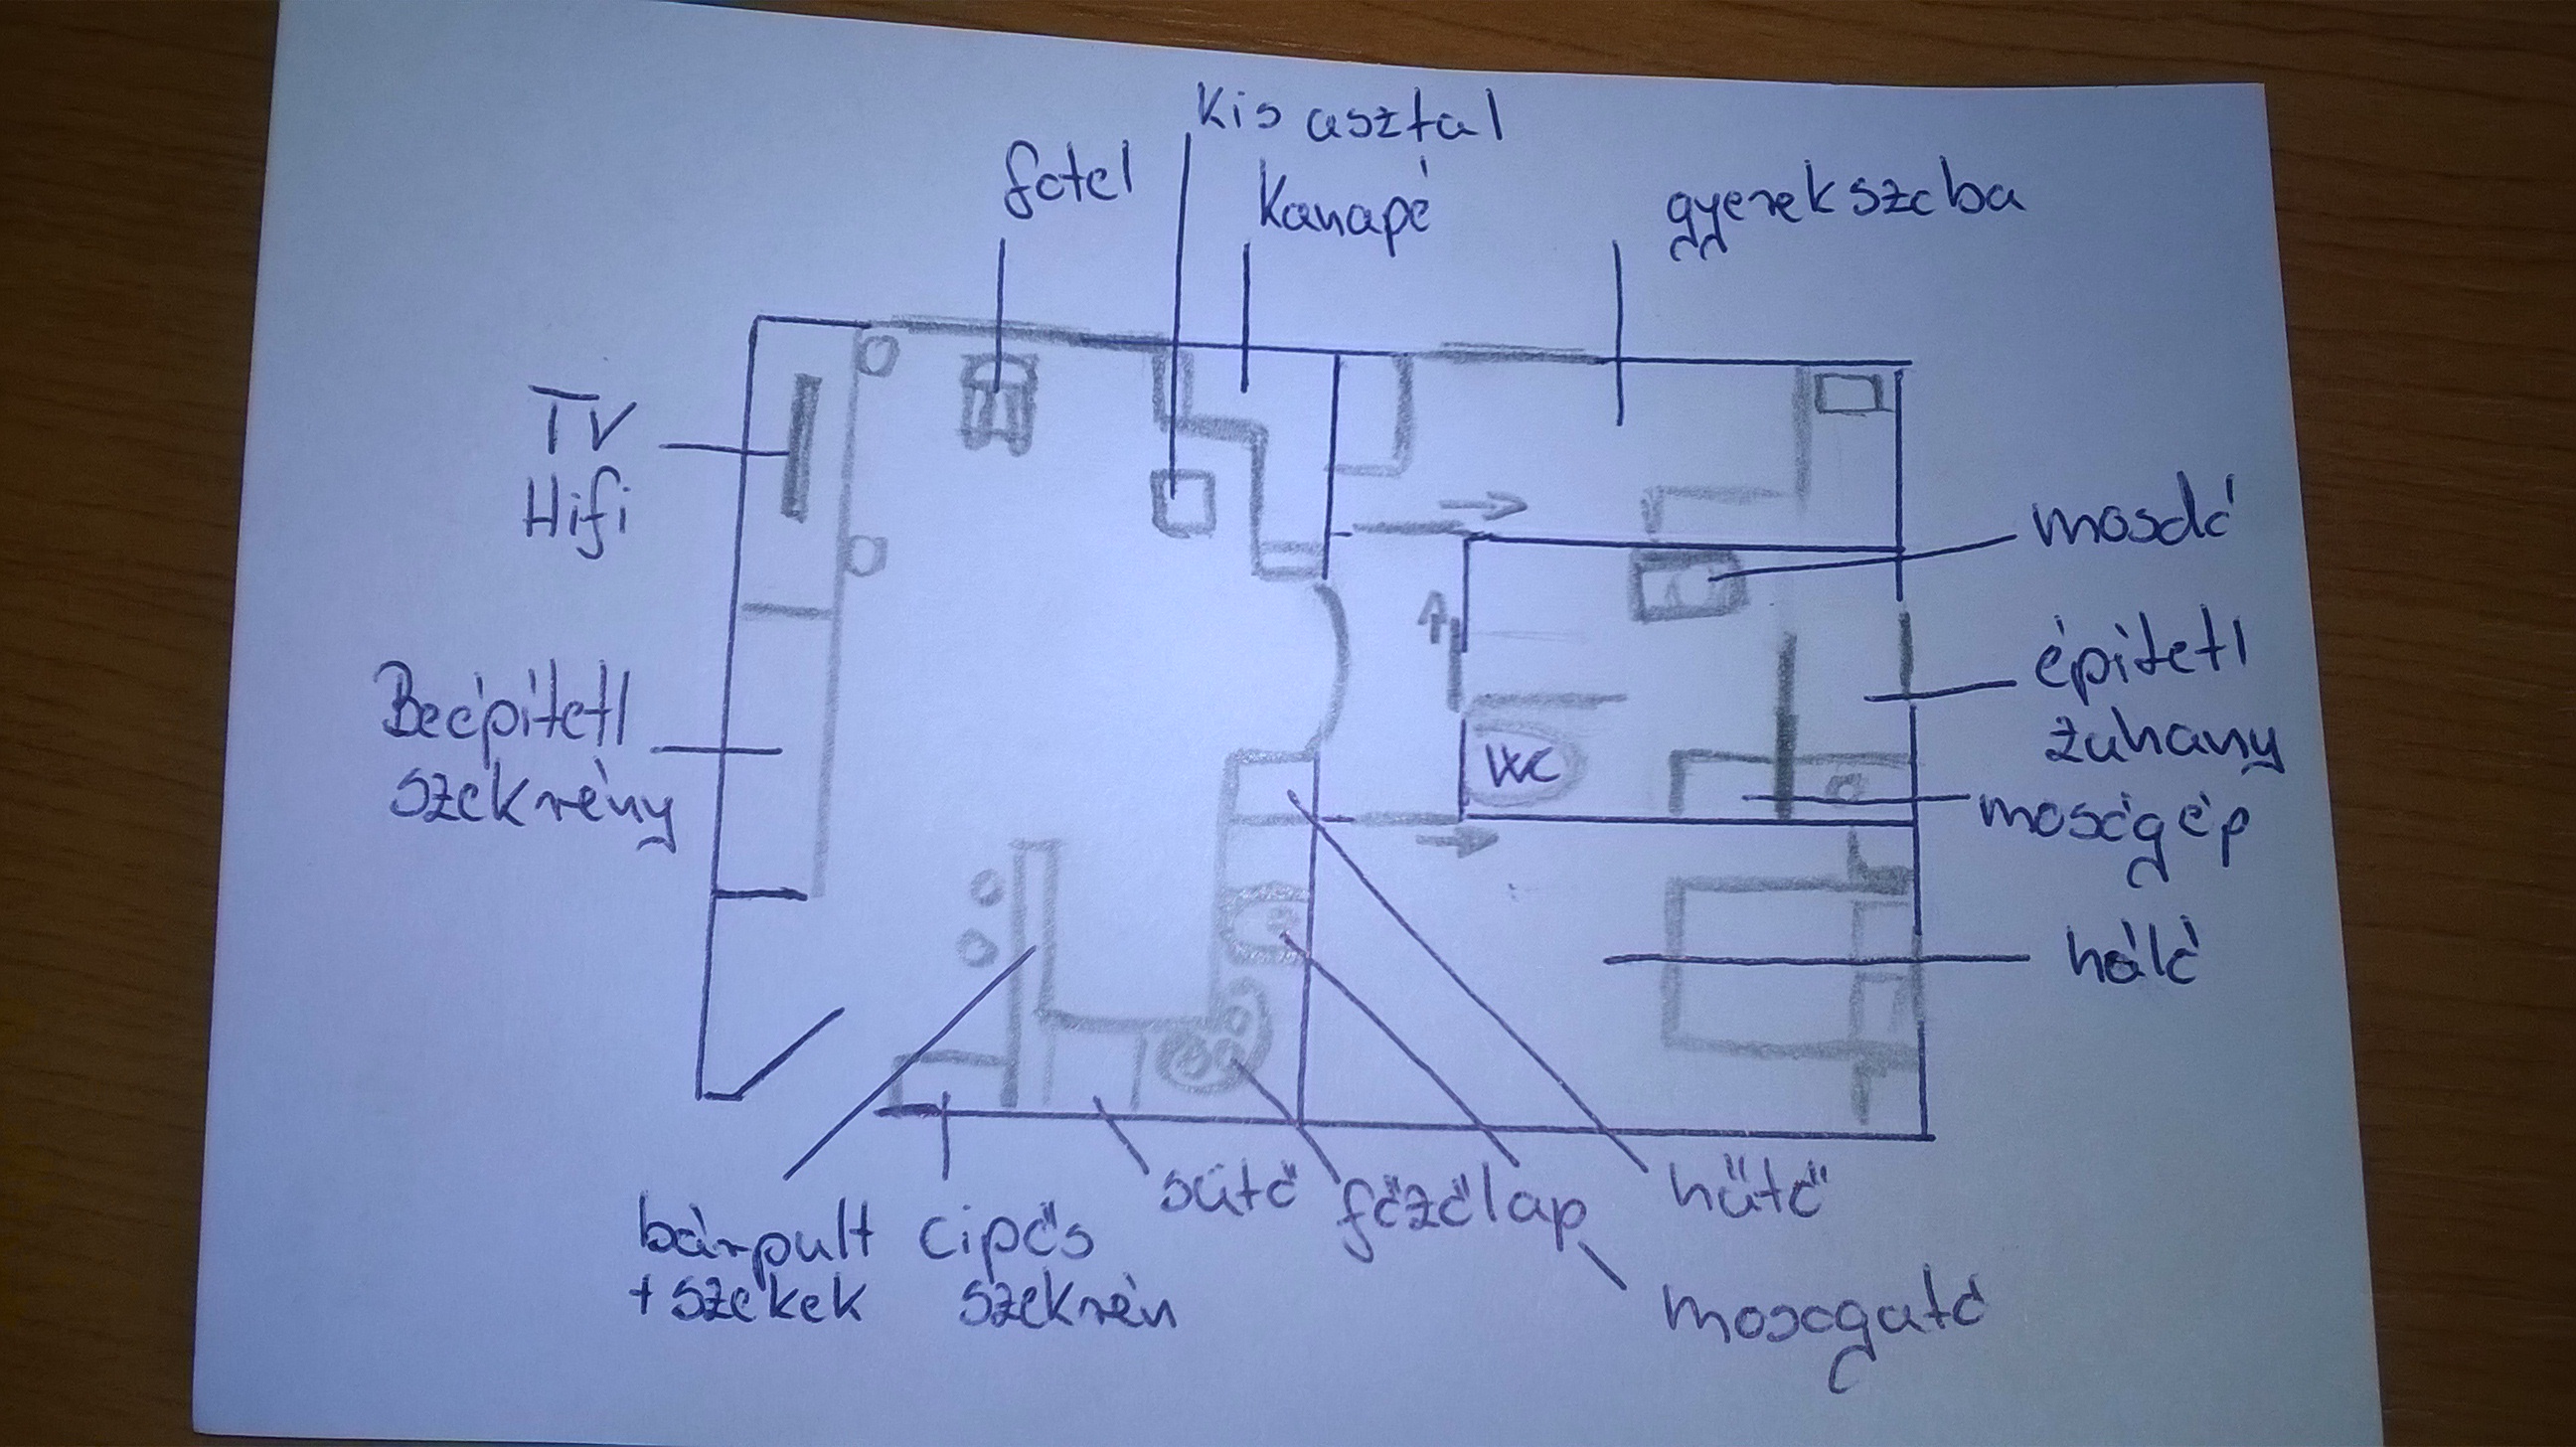 Kis asztal
fotel
Kanapé
gyerekszoba
TV
Hifi
mosdó
építetl
zuhany
Beépitetl
szekrény
WC
mosógép
háló
bárpult
+ székek
cipős
szekrén
sütő
főzőlap
hűtő
mosogató